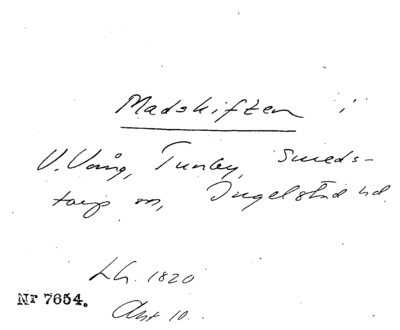 Madskiften i
V. Vång, Tunby, Smeds-
torp sn, Ingelstad hd.
Lh. 1820
Nr 7654.
Akt 10.